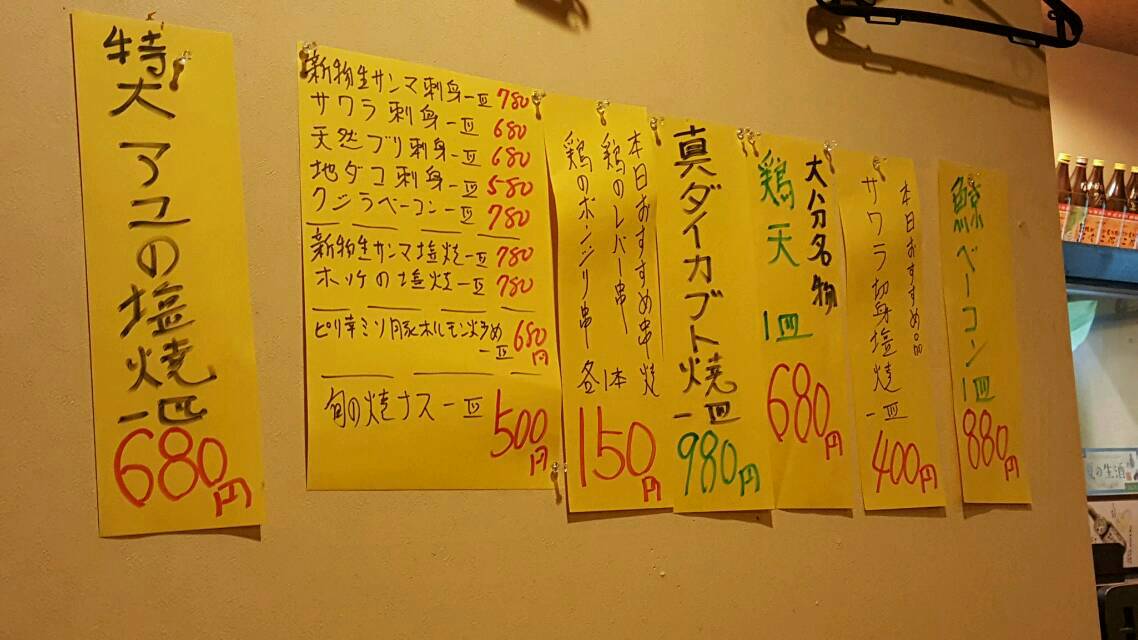 特大アユの塩焼
一匹
680円
新物生サンマ刺身一皿 780
サワラ刺身一皿 680
天然ブリ刺身一皿 680
地ダコ刺身一皿 580
クジラベーコン一皿 780
新物生サンマ塩焼一皿 780
ホッケの塩焼一皿 780
ピリ辛ミソ豚ホルモン炒め
一皿 680円
旬の焼ナス一皿 500円
本日おすすめ串焼
鶏のレバー串
鶏のボンジリ串 各1本
150円
真ダイカブト焼
一皿
980円
大分名物
鶏天 1皿
680円
本日おすすめ品
サワラ切身塩焼
一皿
400円
鯨ベーコン
1皿
880円
の生酒